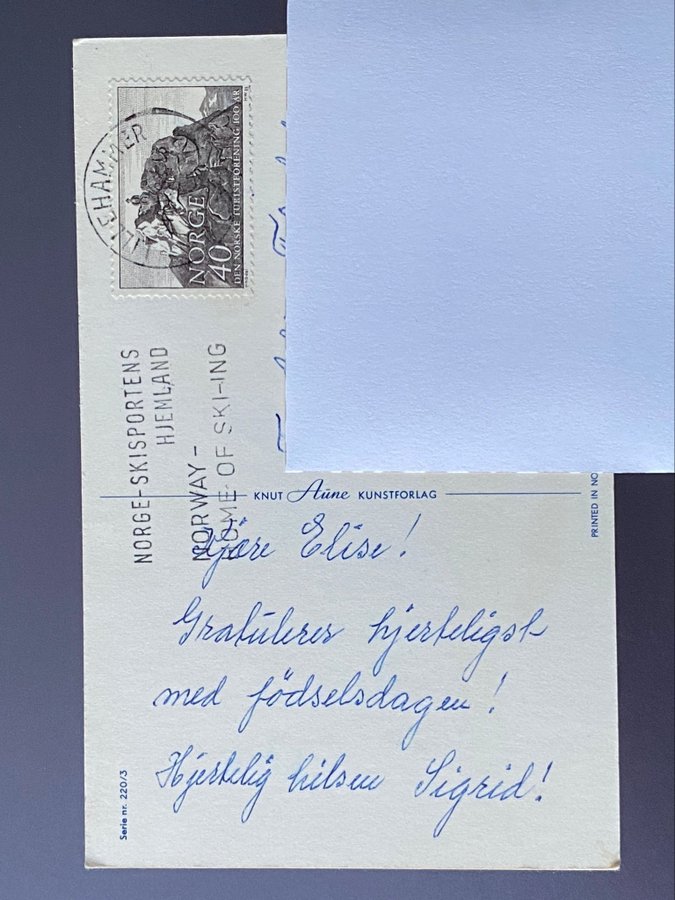 LILLEHAMMER
NORGE
40
DEN NORSKE TURISTFORENING 100 ÅR
NORGE-SKISPORTENS
HJEMLAND
NORWAY-
HOME OF SKI-ING
KNUT Aune KUNSTFORLAG
PRINTED IN NO
Kjöre Elise!
Gratulerer hjerteligst
med födselsdagen!
Hjertelig hilsen Sigrid!
Serie nr. 220/3